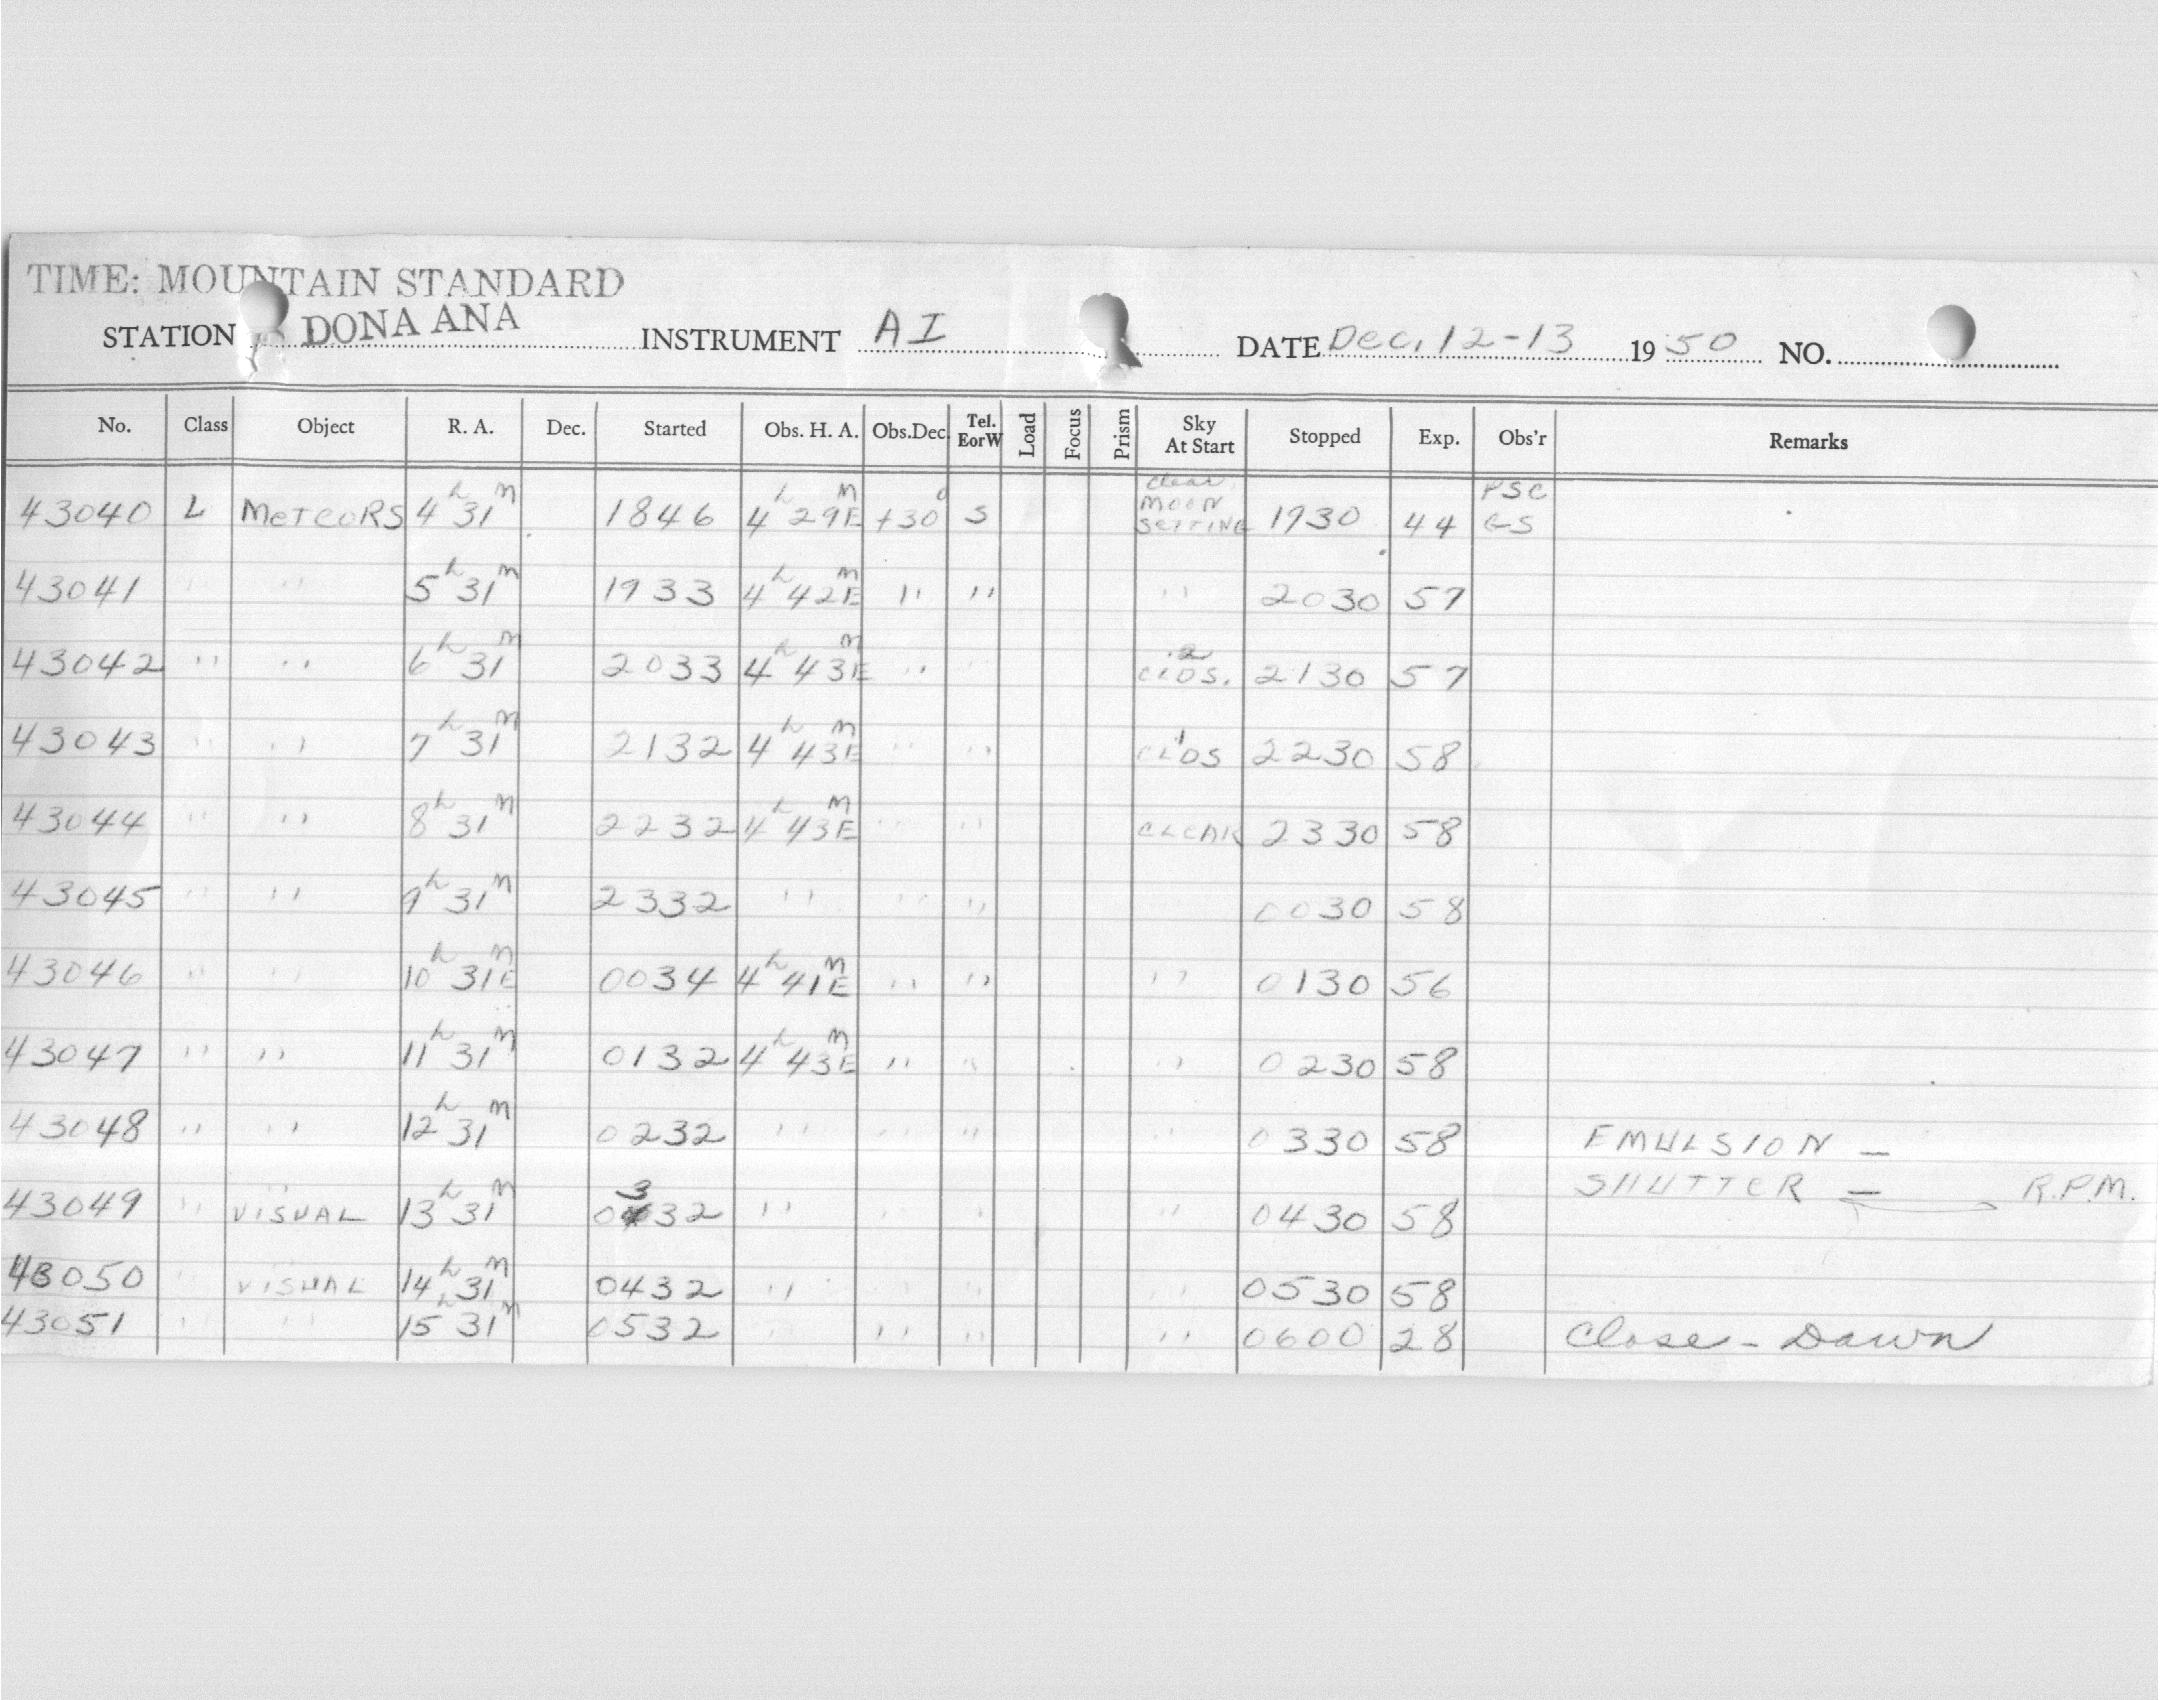 TIME: MOUNTAIN STANDARD
STATION DONA ANA INSTRUMENT AI DATE Dec. 12-13 1950 NO.
No. Class Object R. A. Dec. Started Obs. H. A. Obs.Dec. Tel. EorW Load Focus Prism Sky At Start Stopped Exp. Obs'r Remarks
43040 L METEORS 4h 31m 1846 4h 29mE +30° S clear MOON SETTING 1930 44 PSC GS
43041 " " 5h 31m 1933 4h 42mE " " " 2030 57
43042 " " 6h 31m 2033 4h 43mE " " .2 clds. 2130 57
43043 " " 7h 31m 2132 4h 43mE " " .1 clds 2230 58
43044 " " 8h 31m 2232 4h 43mE " " CLEAR 2330 58
43045 " " 9h 31m 2332 " " " 0030 58
43046 " " 10h 31mE 0034 4h 41mE " " " 0130 56
43047 " " 11h 31m 0132 4h 43mE " " " 0230 58
43048 " " 12h 31m 0232 " " " " 0330 58 EMULSION —
SHUTTER — R.P.M.
43049 " VISUAL 13h 31m 0332 " " " " 0430 58
43050 " VISUAL 14h 31m 0432 " " " " 0530 58
43051 " " 15h 31m 0532 " " " " 0600 28 Close - Dawn